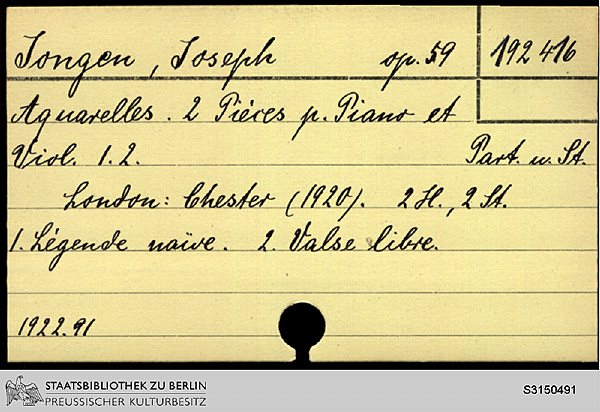 Jongen, Joseph op. 59 192 416
Aquarelles. 2 Pièces p. Piano et
Viol. 1. 2. Part. u. St.
London: Chester (1920). 2 H., 2 St.
1. Légende naïve. 2. Valse libre.
1922.91
STAATSBIBLIOTHEK ZU BERLIN
PREUSSISCHER KULTURBESITZ
S3150491